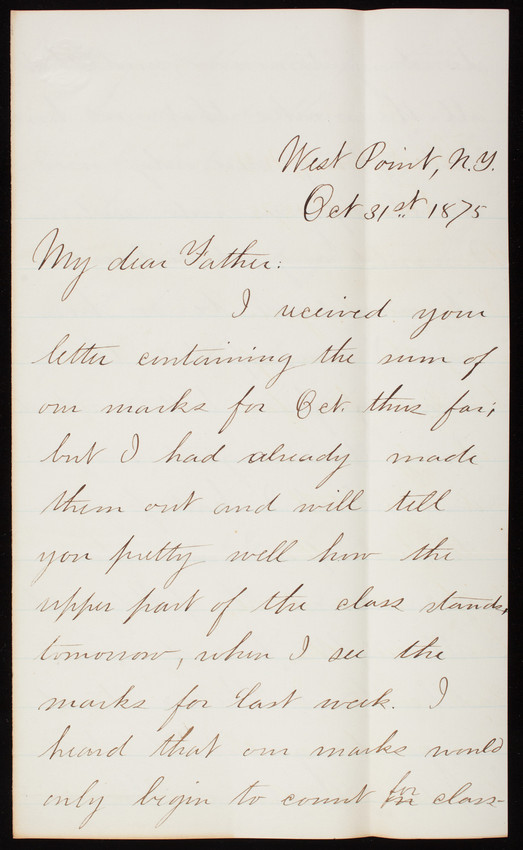 West Point, N.Y.
Oct 31st 1875
My dear Father:
I received your
letter containing the sum of
our marks for Oct. thus far;
but I had already made
them out and will tell
you pretty well how the
upper part of the class stands,
tomorrow, when I see the
marks for last week. I
heard that our marks would
only begin to count for class-